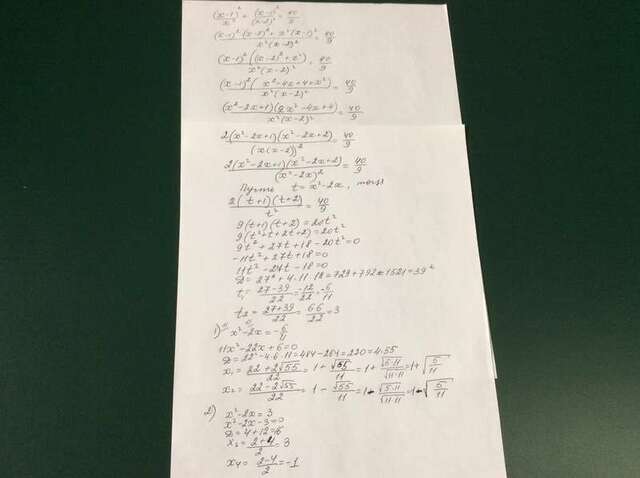 (x-1)²/x² + (x-1)²/(x-2)² = 40/9
((x-1)²(x-2)² + x²(x-1)²)/(x²(x-2)²) = 40/9
((x-1)²((x-2)²+x²))/(x²(x-2)²) = 40/9
((x-1)²(x²-4x+4+x²))/(x²(x-2)²) = 40/9
((x²-2x+1)(2x²-4x+4))/(x²(x-2)²) = 40/9
2(x²-2x+1)(x²-2x+2)/(x(x-2))² = 40/9
2(x²-2x+1)(x²-2x+2)/(x²-2x)² = 40/9
Пусть t=x²-2x, тогда
2(t+1)(t+2)/t² = 40/9
9(t+1)(t+2)=20t²
9(t²+t+2t+2)=20t²
9t²+27t+18-20t²=0
-11t²+27t+18=0
11t²-27t-18=0
D=27²+4·11·18=729+792=1521=39²
t₁=(27-39)/22=-12/22=-6/11
t₂=(27+39)/22=66/22=3
1) x²-2x=-6/11
11x²-22x+6=0
D=22²-4·6·11=484-264=220=4·55
x₁=(22+2√55)/22=1+√55/11=1+√(5·11)/√(11·11)=1+√(5/11)
x₂=(22-2√55)/22=1-√55/11=1-√(5·11)/√(11·11)=1-√(5/11)
2) x²-2x=3
x²-2x-3=0
D=4+12=16
x₃=(2+4)/2=3
x₄=(2-4)/2=-1